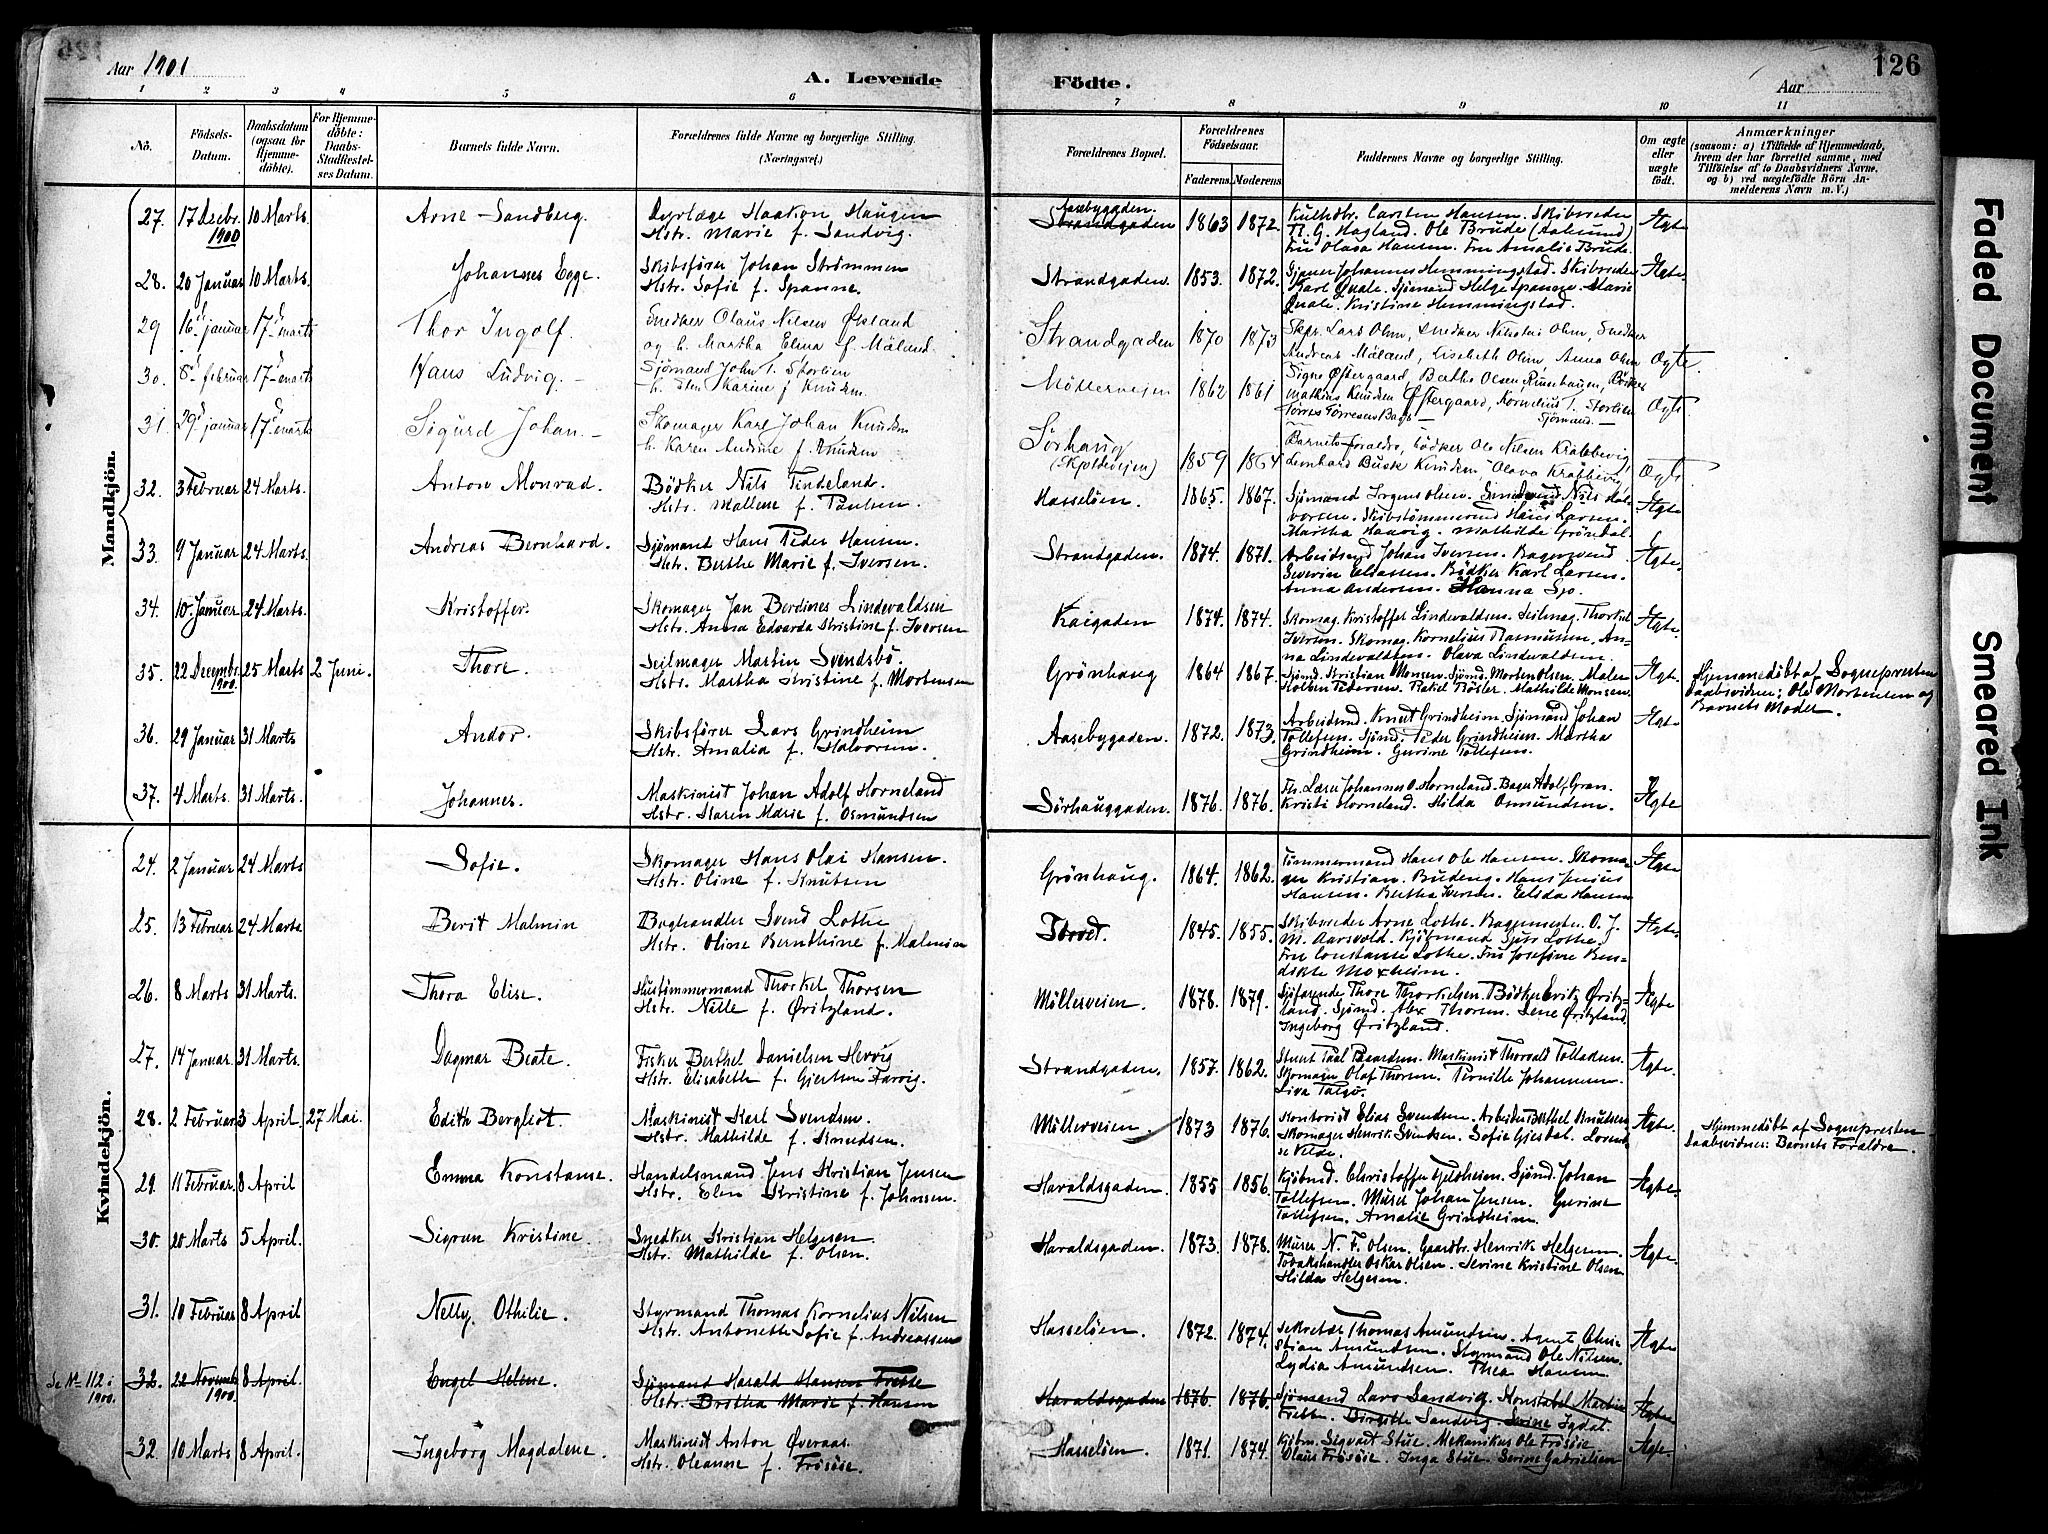 Aar 1901
A. Levende
Födte.
Aar
126
1 2 3 4 5 6 7 8 9 10 11
No.
Födsels-
Datum.
Daabsdatum
(ogsaa for
Hjemme-
döbte).
For Hjemme-
döbte:
Daabs-
Stadfæstel-
ses Datum.
Barnets fulde Navn.
Forældrenes fulde Navne og borgerlige Stilling.
(Næringsvei.)
Forældrenes Bopæl.
Forældrenes
Födselsaar.
Faderens. Moderens.
Faddernes Navne og borgerlige Stilling.
Om ægte
eller
uægte
født.
Anmærkninger
(saasom: a) i Tilfælde af Hjemmedaab,
hvem der har forrettet samme, med
Tilföielse af to Daabsvidners Navne,
og b) ved uægtefödte Börn An-
melderens Navn m. V.)
Mandkjön.
27. 17 Decbr. 1900 10 Marts. Arne Sandberg. Dyrlæge Haakon Haugen
Hstr. Marie f. Sandvig.
Aasebygaden. Strandgaden 1863 1872. Carsten Hansen. Skibsreder
G. Hagland. Ole Brude (Aalesund)
Fru Olava Hansen. Fru Amalie Brude. Ægte
28. 20 Januar 10 Marts. Johannes Egge. Skibsfører Johan Strömmen
Hstr. Sofie f. Spanne.
Strandgaden. 1853. 1872. Johannes Hemmingstad. Skibsreder
Karl Qvale. Sjömand Helge Spanne. Marie
Qvale. Kristine Hemmingstad. Ægte.
29 16 januar 17 marts Thor Ingolf. Snedker Olaus Nilsen Øksland
og h. Martha Elina f. Mæland.
Strandgaden 1870 1873 Skpr. Lars Olsen, Snedker Nikolai Olsen, Snedker
Andreas Mæland, Lisebeth Olsen, Anna Olsen Ægte.
30. 8 februar 17 marts Hans Ludvig. Sjömand John T. Storlien
h. Karine f. Knudsen
Møllerveien 1862 1861 Signe Østergaard, Berthe Olsen
Mathias Knudsen Østergaard, Kornelius T. Storlien
Sjömand. Ægte
31. 29 januar 17 marts Sigurd Johan. Skomager Karl Johan Knudsen
h. Karen Andrine f. Knudsen
Sörhaug
(Skjoldeveien) 1859 1864 Barnets Foraldre, Bödker Ole Nilsen Krabbevig,
Lenhard Buck Knudsen, Olava Krabbevig, Ægte
32. 3 Februar 24 Marts. Anton Monrad. Bödker Nils Tindeland.
Hstr. Mallene f. Paulsen.
Hasselöen. 1865. 1867. Sjömand Jrgens Olsen. Nils Hal-
vorsen. Skibstömmermd Hans Larsen.
Martha Haavig. Mathilde Gröndal. Ægte
33. 9 Januar 24 Marts. Andreas Bernhard. Sjömand Hans Peder Hansen.
Hstr. Berthe Marie f. Iversen.
Strandgaden. 1874. 1871. Arbeidsmd Johan Iversen. Bagersvend
Severin Eliassen. Bödker Karl Larsen.
Anna Andersen. Hanna Sjo. Ægte.
34. 10 Januar 24 Marts. Kristoffer. Skomager Jan Berdines Lindevaldsen
Hstr. Anna Edvarda Kristine f. Iversen
Kaigaden 1874. 1874. Skomag. Kristoffer Lindevaldsen. Seilmag. Thorkel
Iversen. Skomag. Kornelius Rasmussen. An-
na Lindevaldsen. Olava Lindevaldsen. Ægte.
35. 22 Decembr. 1900. 25 Marts 2 Juni. Thore. Seilmager Martin Svendsbö.
Hstr. Martha Kristine f. Mortensen
Grönhaug 1864 1867. Sjömd. Kristian Monsen. Sjömd. Morten Olsen. Malen
Kolben Pedersen. Rakel Bösler. Mathilde Monsen. Ægte. Hjemmedöbt af Sognepresten
Daabsvidner: Ole Mortensen og
Barnets Moder.
36. 29 Januar 31 Marts Andor. Skibsförer Lars Grindheim
Hstr. Amalia f. Halvorsen.
Aasebygaden. 1872. 1873. Arbeidsmd. Knut Grindheim. Sjömand Johan
Tollefsen. Sjömd. Peder Grindheim. Martha
Grindheim. Gurine Tollefsen. Ægte
37. 4 Marts. 31 Marts. Johannes. Maskinist Johan Adolf Horneland
Hstr. Karen Marie f. Osmundsen
Sörhauggaden. 1876. 1876. Fh. Lærer Johannes O. Horneland. Bager Adolf Gran.
Kristi Horneland. Hilda Osmundsen. Ægte
Kvindekjön.
24. 2 Januar 24 Marts Sofie. Skomager Hans Olai Hansen.
Hstr. Oline f. Knutsen
Grönhaug. 1864. 1862. Tömmermand Hans Ole Hansen. Skoma-
ger Kristian Budeng. Hans Jenius
Hansen. Bertha Iversen. Elida Hansen Ægte
25. 13 Februar 24 Marts Berit Malmin Boghandler Svend Lothe
Hstr. Oline Bernthine f. Malmin
Torvet. 1845. 1855. Skibsreder Arne Lothe. Bagermester O. J.
M. Aarsvold. Kjöbmand Sjurs Lothe.
Fru Constanse Lothe. Fru Josefine Ben-
dikte Moxheim. Ægte.
26. 8 Marts 31 Marts. Thora Elise. Hustömmermand Thorkel Thorsen
Hstr. Nille f. Øritzland.
Möllerveien. 1878. 1879. Sjöfarende Thore Thorkelsen. Bödker Evitz Øritz-
land. Sjömd. Alex Thorsen. Lene Øritzland
Ingeborg Øritzland. Ægte
27. 14 Januar. 31 Marts. Dagmar Beate. Fisker Berthel Danielsen Hervig
Hstr. Elisabeth f. Gjertsen Farvig.
Strandgaden. 1857. 1862. Stuert Paal Paulsen. Maskinist Thorvald Tollefsen.
Skomager Olaf Thorsen. Pernille Johannesen.
Liva Talgö. Ægte.
28. 2 Februar 3 April 27 Mai. Edith Bergliot. Maskinist Karl Svendsen
Hstr. Mathilde f. Knudsen.
Möllerveien. 1873 1876. Kontorist Elias Svendsen. Arbeider Berthel Knutsen
Skomager Henrik Svendsen. Sofie Gjesdal. Loren-
se Velde. Ægte. Hjemmedöbt af Sognepresten
Daabsvidner: Barnets Foraldre.
29. 11 Februar 8 April Emma Konstanse. Handelsmand Jens Kristian Jensen
Hstr. Elen Kristine f. Johnsen.
Haraldsgaden. 1855 1856. Kjöbmd. Christoffer Fjeldheim. Sjömd. Johan
Tollefsen. Murer Johan Jensen. Gurine
Tollefsen. Amalie Grindheim. Ægte.
30. 20 Marts 5 April. Sigrun Kristine. Snedker Kristian Helgesen
Hstr. Mathilde f. Olsen.
Haraldsgaden. 1873. 1878. Murer N. F. Olsen. Gaardbr. Henrik Helgesen.
Tobakshandler Oskar Olsen. Sevine Kristine Olsen
Hilda Helgesen. Ægte.
31. 10 Februar 8 April Nelly Othilie. Styrmand Thomas Kornelius Nilsen
Hstr. Antonette Sofie f. Andreassen
Hasselöen. 1872. 1874. Sekretær Thomas Amundsen. Agent Chri-
stian Amundsen. Styrmand Ole Nilsen.
Lydia Amundsen. Thea Hansen. Ægte
Se No 112 i 1900. 32. 22 Novemb. 1900. 8 April. Engel Helene. Sjömand Harald Hansen Frette
Hstr. Britha Marie f. Hansen
Haraldsgaden 1876. 1876. Sjömand Lars Sandvig. Konstabel Martin
Frette. Birgitte Sandvig. Serine Indal. Ægte
32. 10 Marts 8 April. Ingeborg Magdalene. Maskinist Anton Øveraas.
Hstr. Oleanne f. Frösöse.
Hasselöen. 1871. 1874. Kjöbm. Sigvart Stue. Mekanikus Ole Frösöse
Olaus Frösöse. Inga Stue. Serine Gabrielsen Ægte.
Faded Document
Smeared Ink